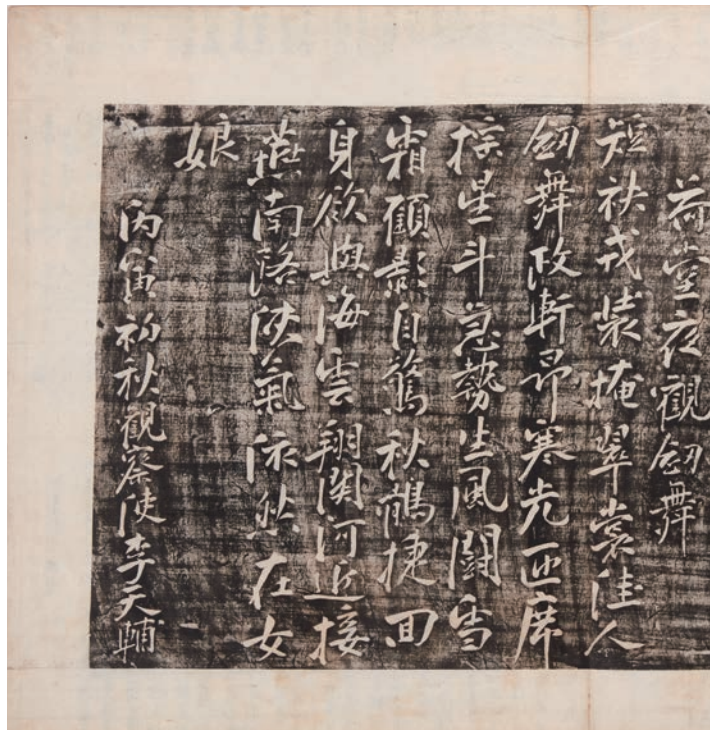 荷堂夜觀釰舞
短袂戎裝掩翠裳佳人
釰舞政軒昂寒光匝席
搖星斗急勢生風鬪雪
霜顧影自驚秋鶻捷回
身欲與海雲翔關河近接
燕南路俠氣依然在女
娘
丙寅初秋觀察使李天輔